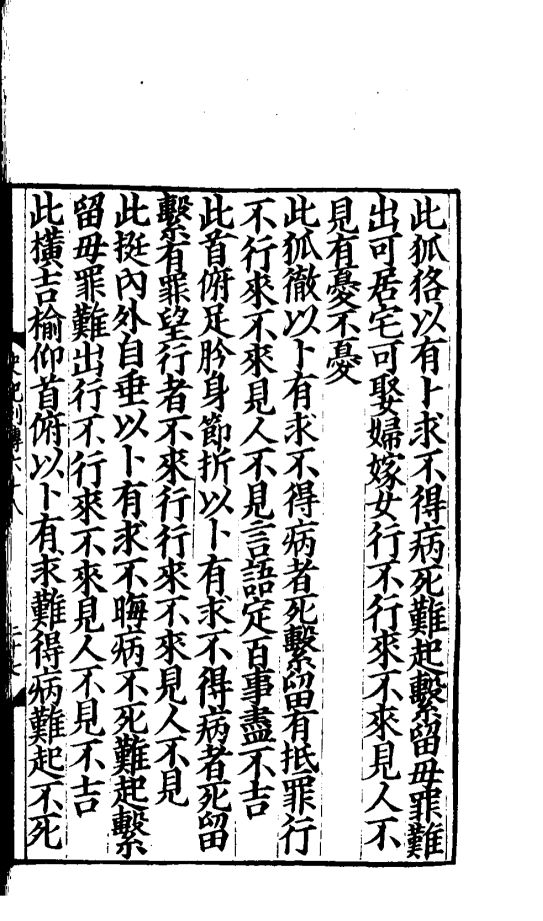 此狐狢以有卜求不得病死難起繫留毋罪難
出可居宅可娶婦嫁女行不行來不來見人不
見有憂不憂
此狐徹以卜有求不得病者死繫留有抵罪行
不行來不來見人不見言語定百事盡不吉
此首俯足肣身節折以卜有求不得病者死留
繫有罪望行者不來行行來不來見人不見
此挺內外自垂以卜有求不晦病不死難起繫
留毋罪難出行不行來不來見人不見不吉
此橫吉榆仰首俯以卜有求難得病難起不死